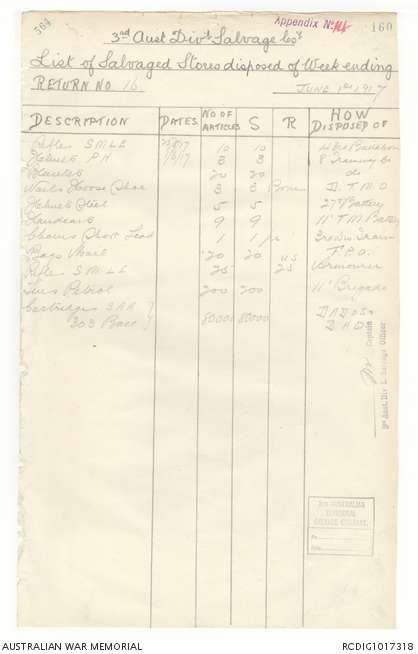 564
Appendix No 46
160
3rd Aust Divl Salvage Coy
List of Salvaged Stores disposed of Week ending
RETURN NO 16 JUNE 1st 1917
DESCRIPTION DATES NO OF ARTICLES S R HOW DISPOSED OF
Rifles S.M.L.E. 10 10 Battalion
Helmets P.H. 1/6/17 3 3 8 Tramway Co
Blankets 20 20 do
Nails Horse Shoe 3 3 Boxes D.T.M.O
Helmets Steel 5 5 27 Battery
Handcarts 9 9 11 T M Battery
Chains Short Lead 1 1 pr 3rd Div Train
Bags Mail 20 20 F.P.O.
Rifles S.M.L.E. 25 25 Armourer
Tins Petrol 200 200 11 Brigade
Cartridges S.A.A }
303 Ball } 80000 80000 DADOS
Captain
3rd Aust. Div l. Salvage Officer
3RD AUSTRALIAN
DIVISIONAL
SALVAGE COMPANY.
No.
Date
AUSTRALIAN WAR MEMORIAL RCDIG1017318